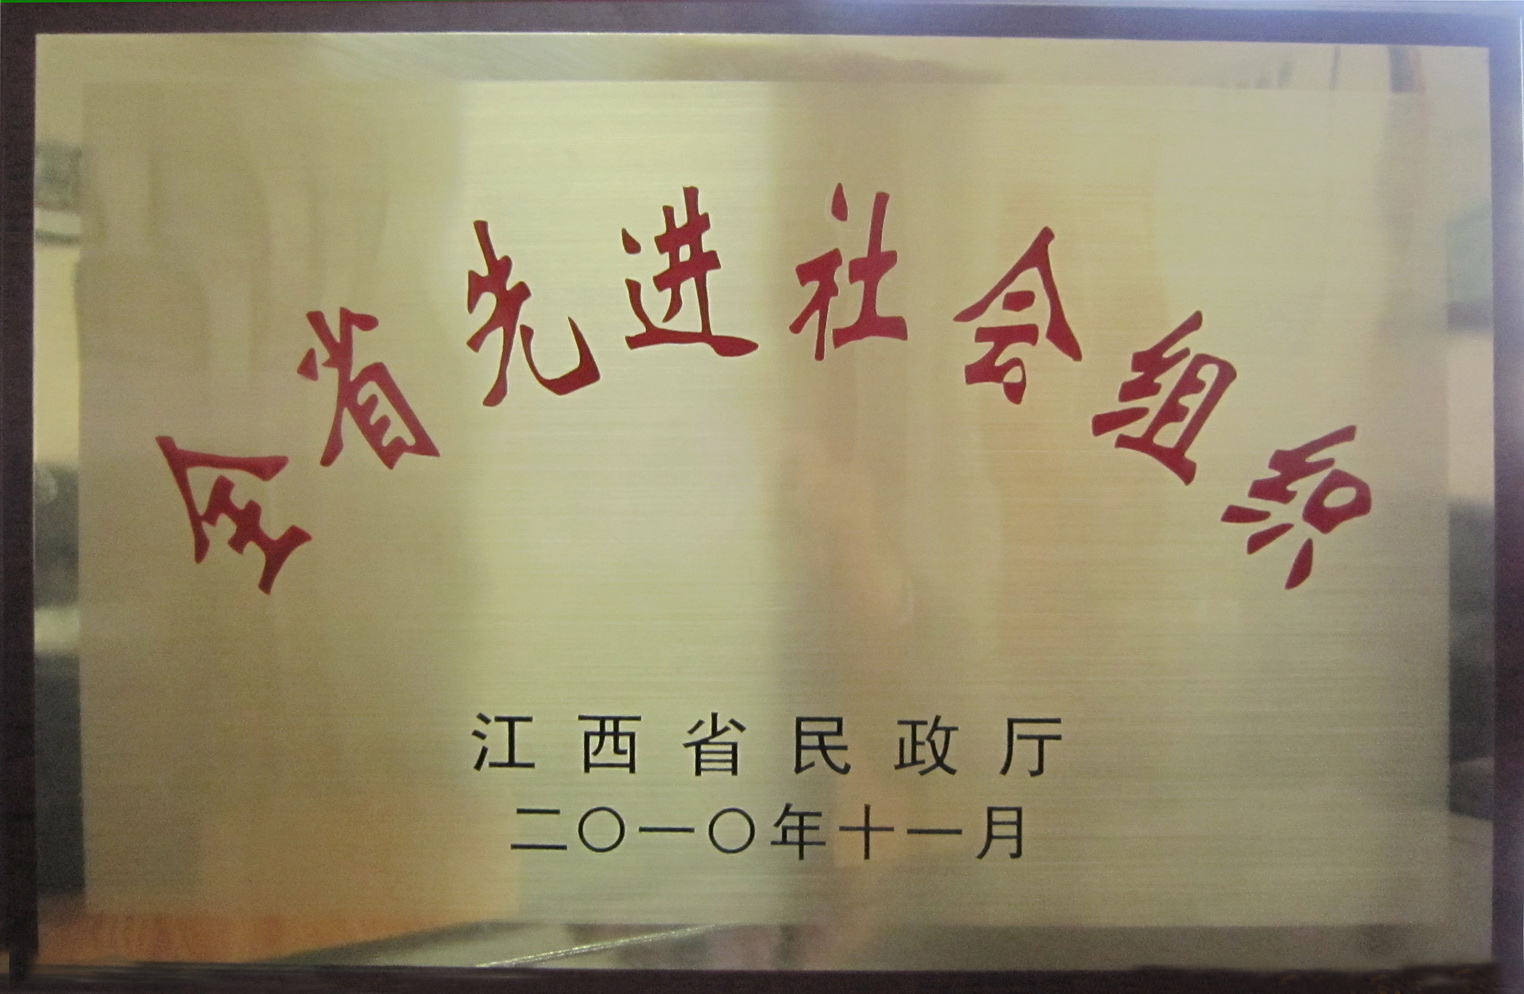 全省先进社会组织
江西省民政厅
二〇一〇年十一月